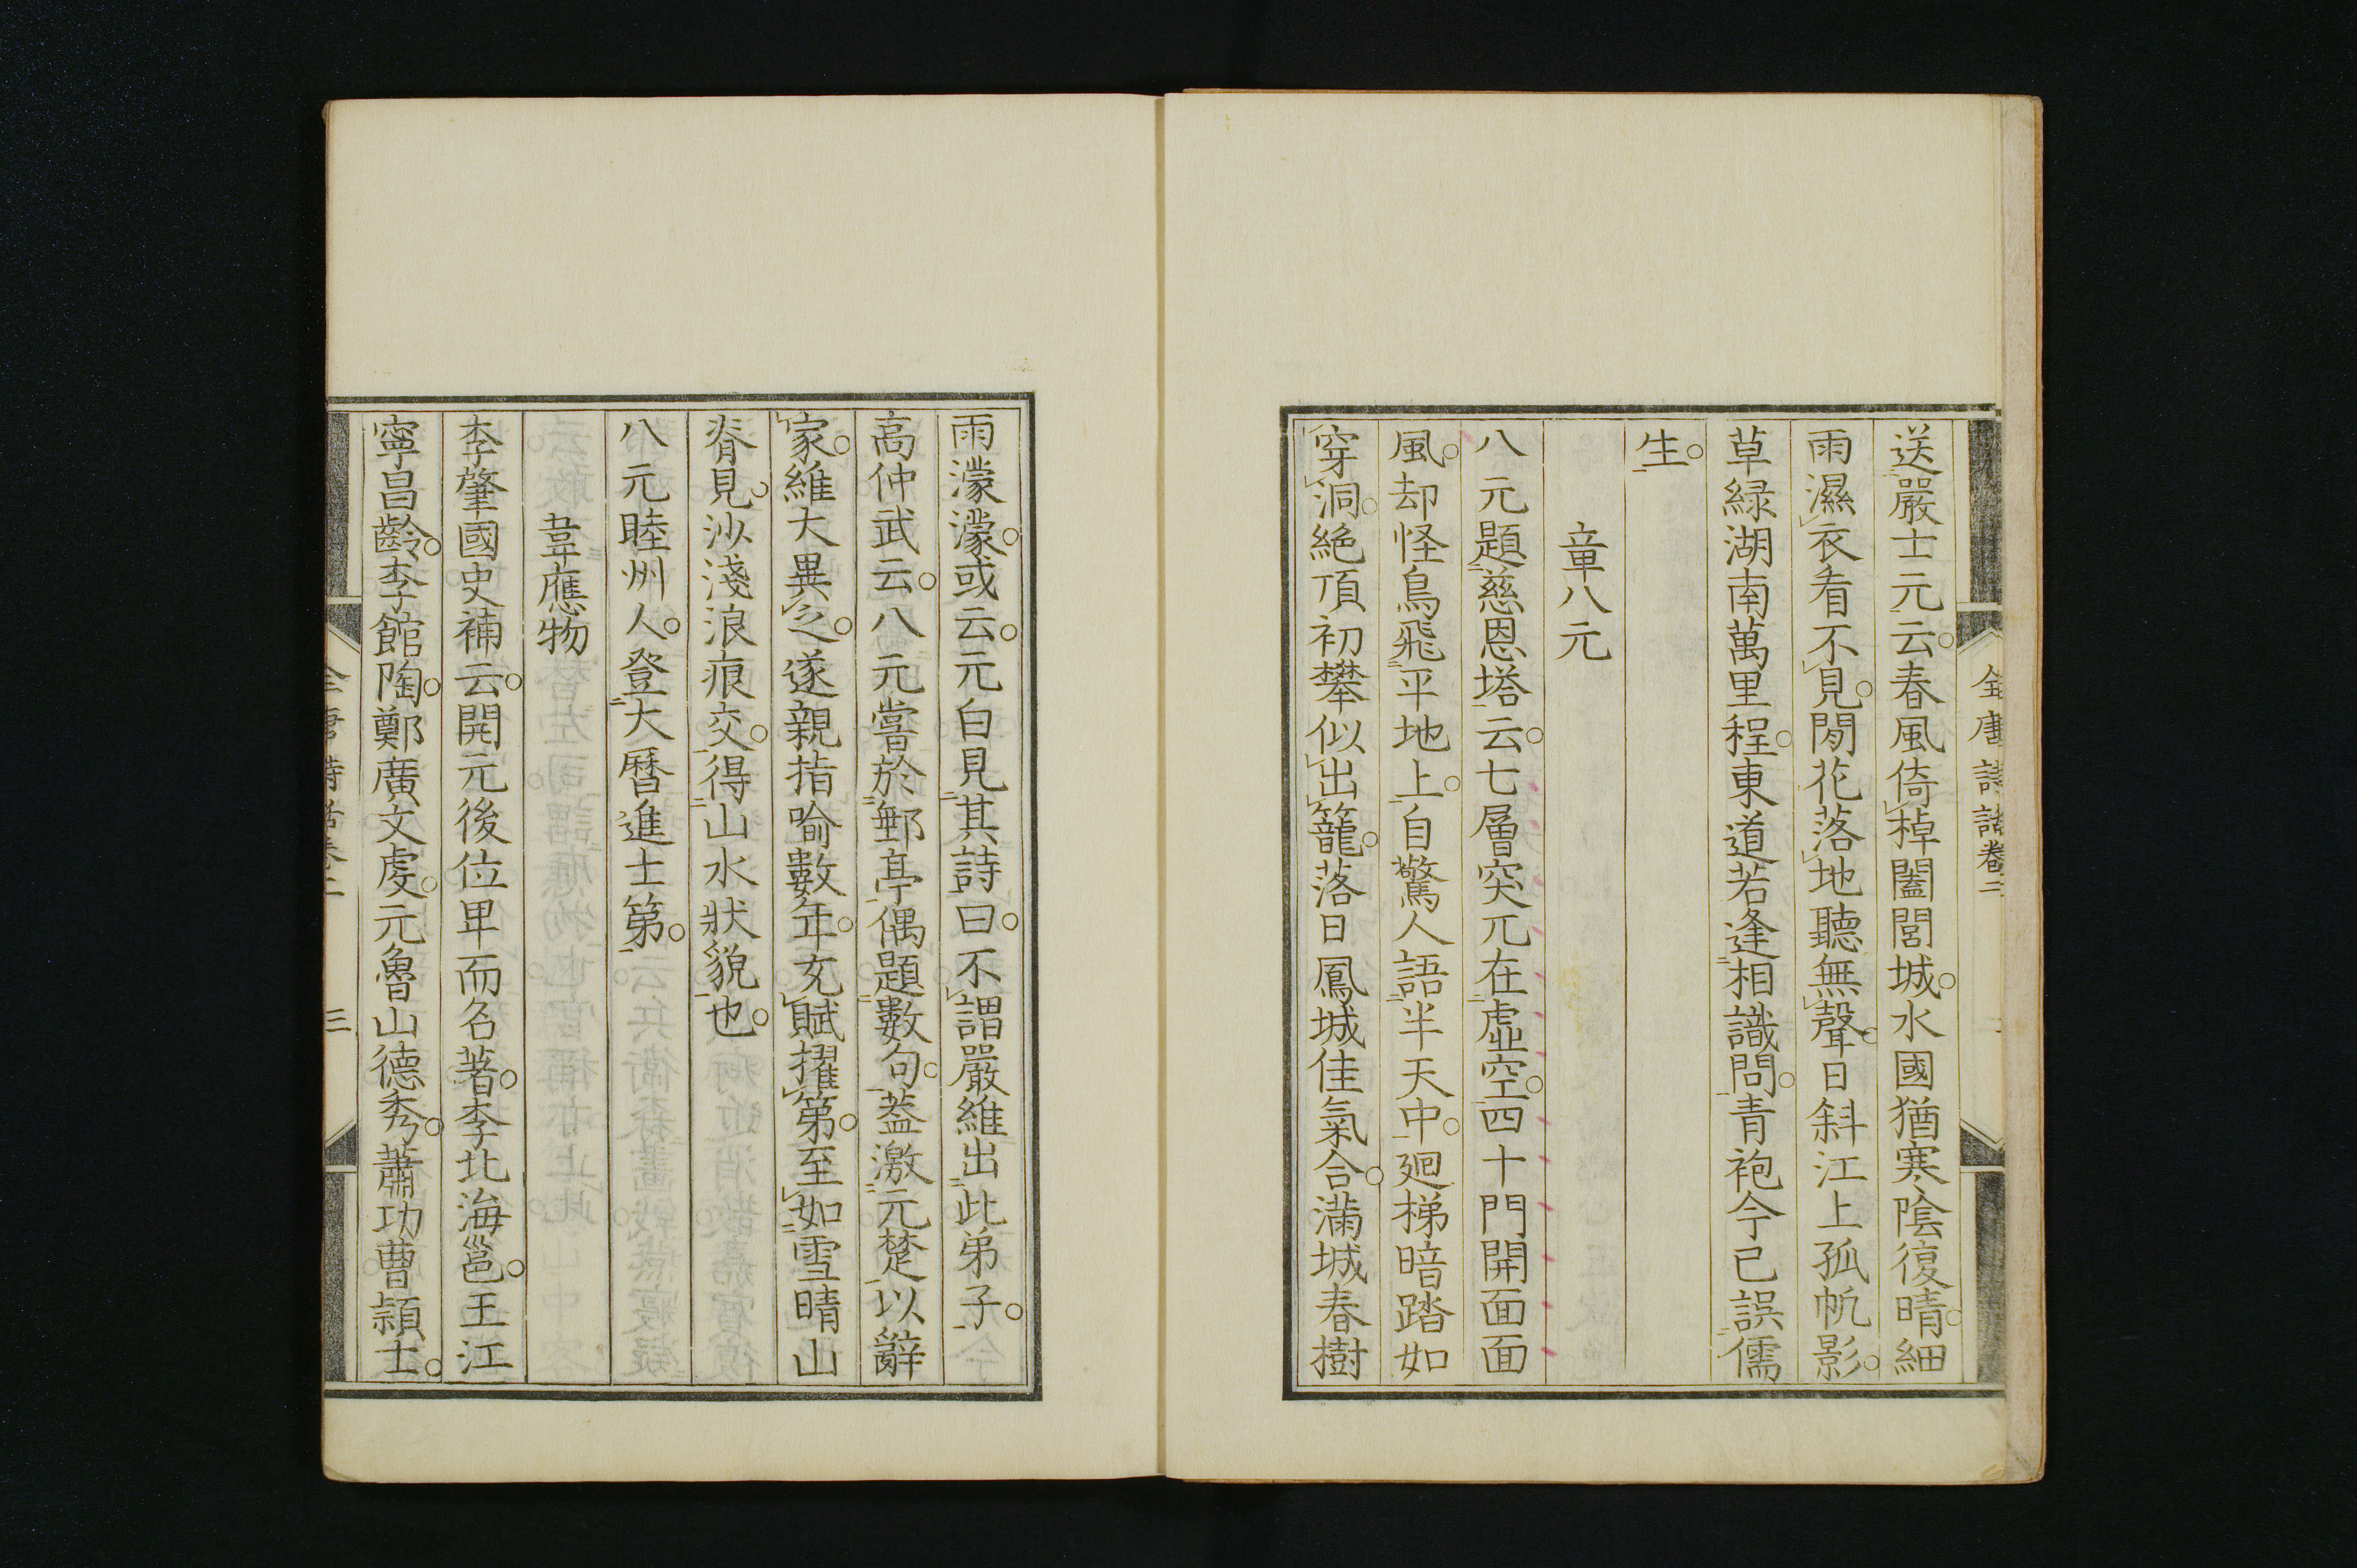 全唐詩話卷二
送嚴士元云春風倚棹闔閭城水國猶寒陰復晴細
雨濕衣看不見閒花落地聽無聲日斜江上孤帆影
草緑湖南萬里程東道若逢相識問青袍今已誤儒
生
章八元
八元題慈恩塔云七層突兀在虛空四十門開面面
風却怪鳥飛平地上自驚人語半天中廻梯暗踏如
穿洞絶頂初攀似出籠落日鳳城佳氣合滿城春樹
雨濛濛或云元白見其詩曰不謂嚴維出此弟子
高仲武云八元嘗於郵亭偶題數句葢激元楚以辭
家維大異之遂親指喻數年充賦擢第至如雪晴山
脊見沙淺浪痕交得山水狀貌也
八元睦州人登大曆進士第
韋應物
李肇國史補云開元後位卑而名著李北海邕王江
寧昌齡李館陶鄭廣文虔元魯山德秀蕭功曹頴士
全唐詩話卷二 三